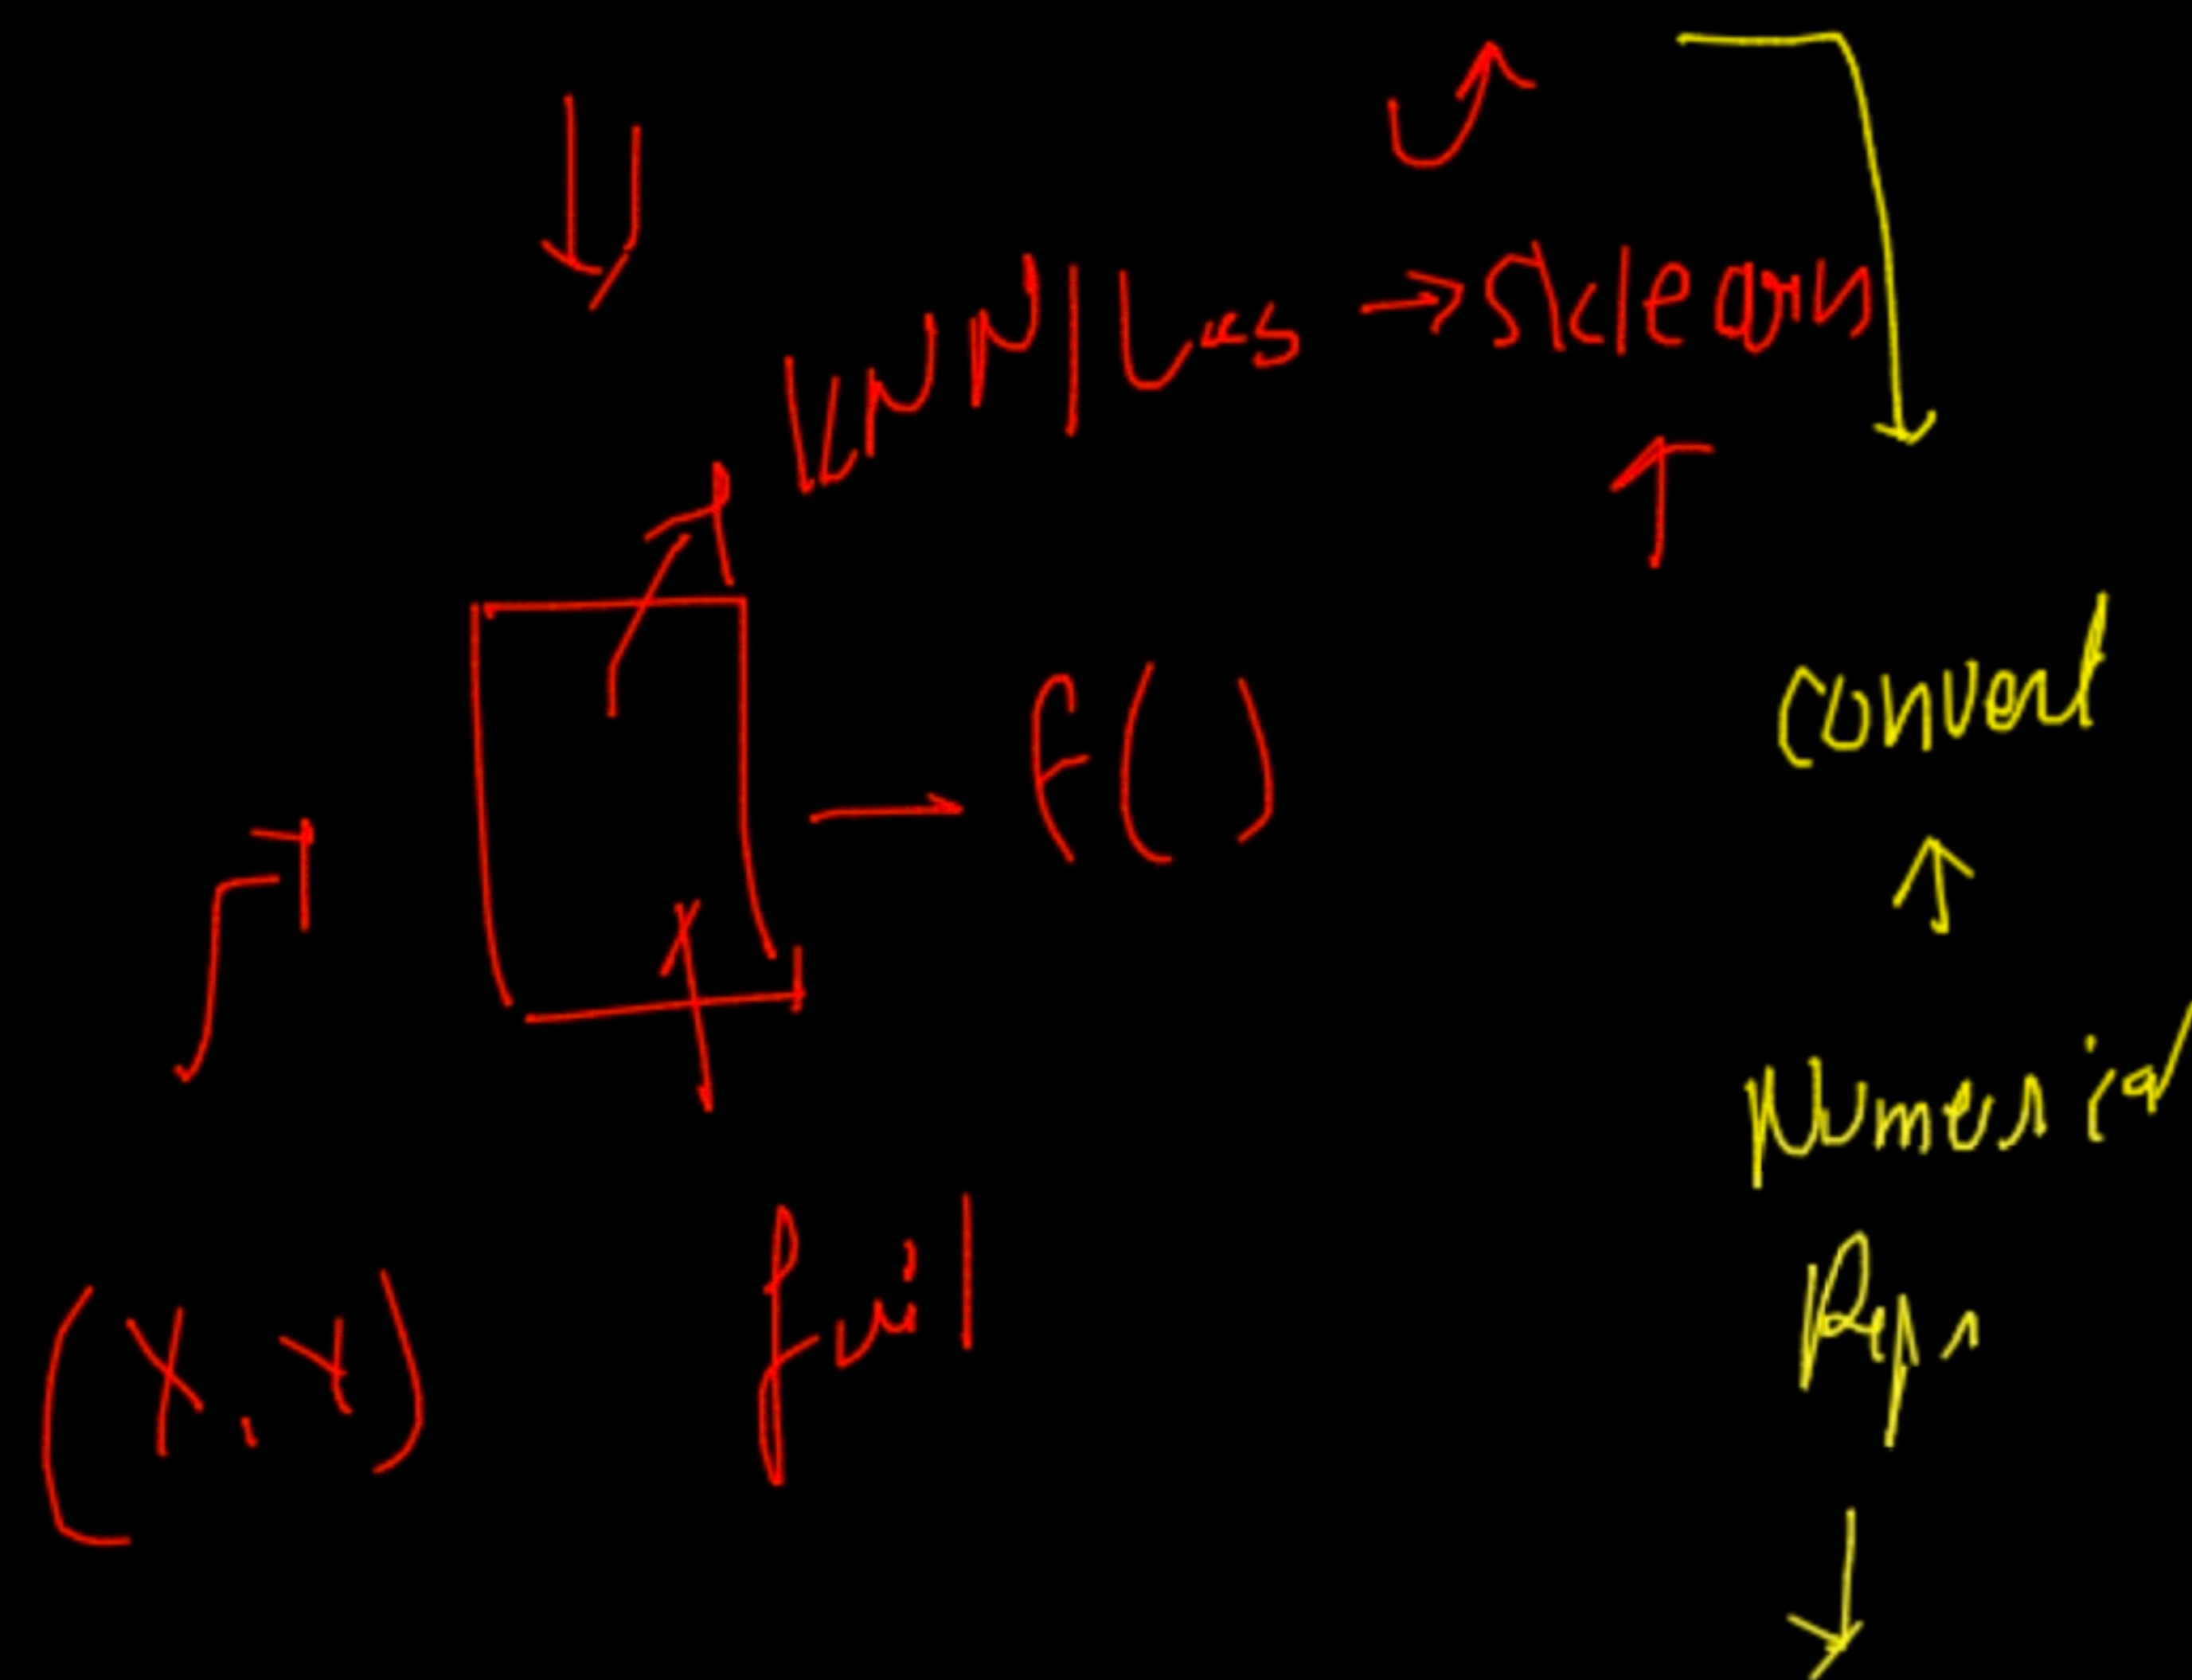 KNN | Las → sklearn
f( )
convert
Numerical
Repr
(X, Y)
fail